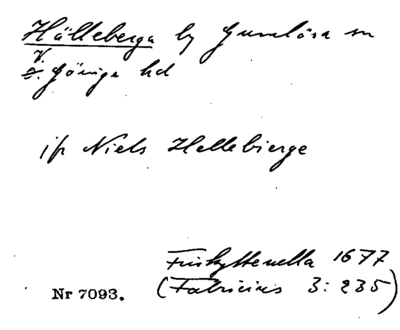 Hälleberga by Gumlösa sn
V.
ö. Göinge hd
if Niels Hellebierge
Friskyttenella 1677
(Fabricius 3: 235)
Nr 7093.